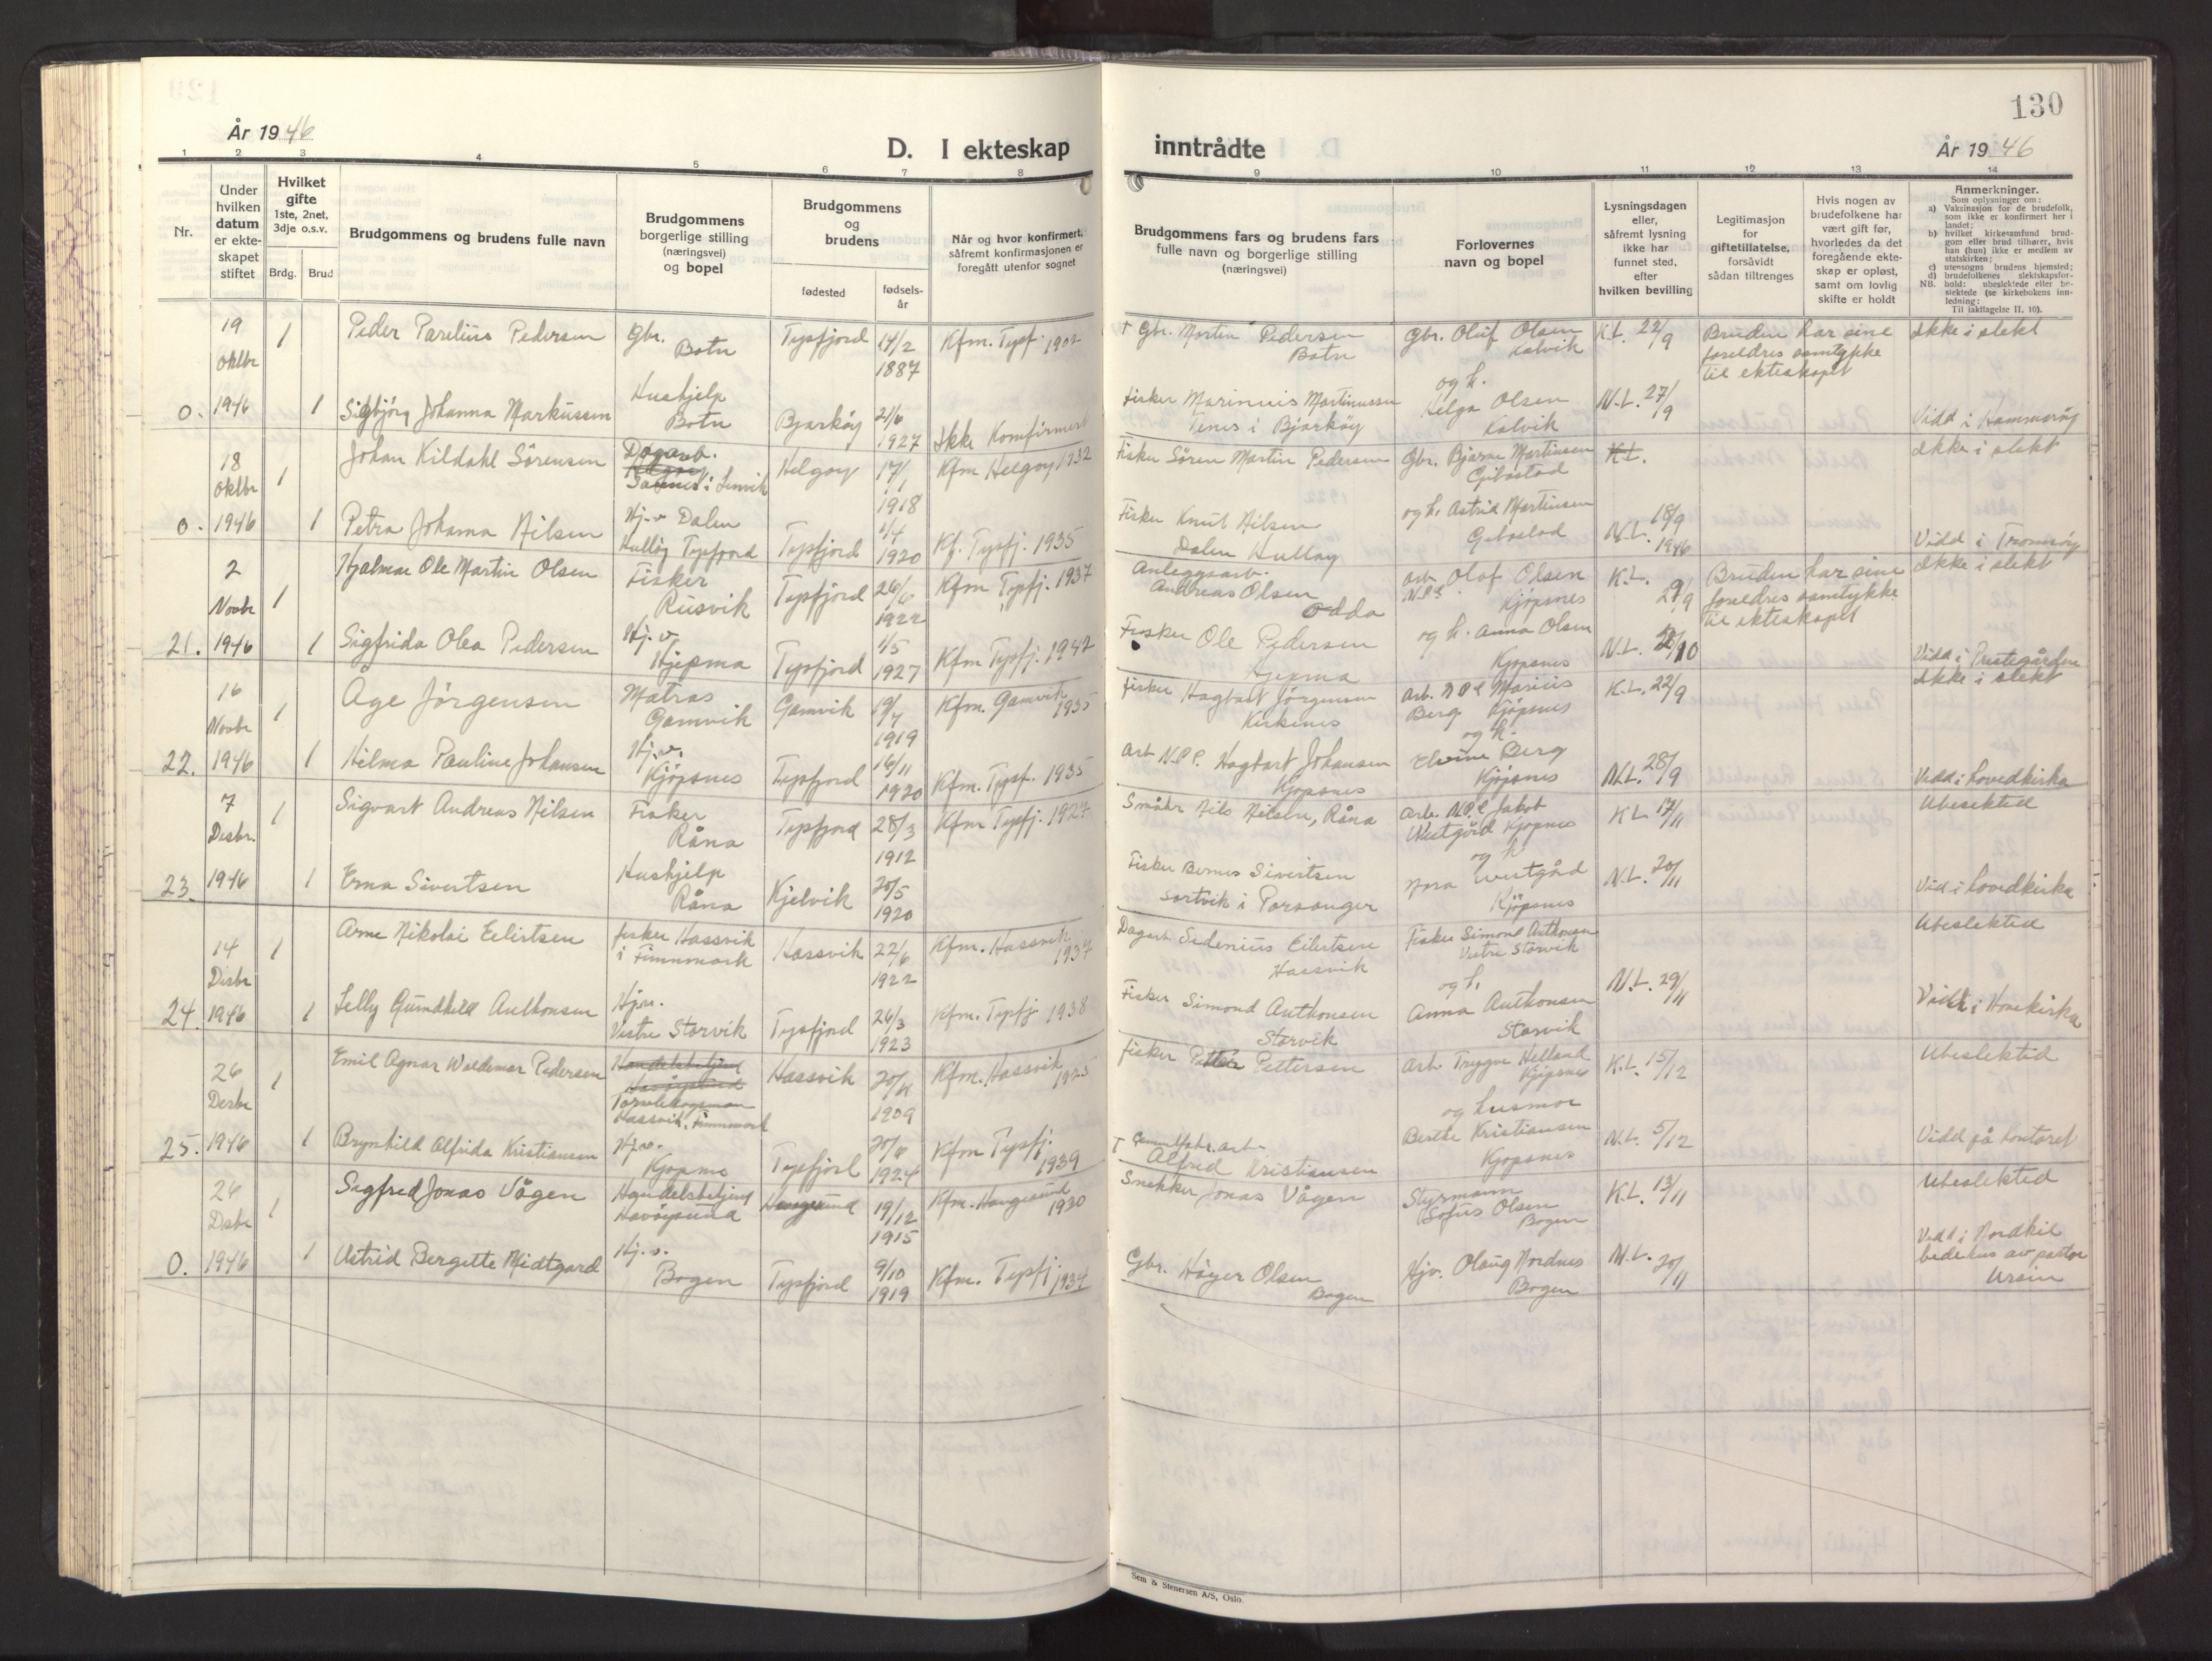 130
År 1946
D. I ekteskap
inntrådte
År 1946
1
2
3
4
5
6
7
8
9
10
11
12
13
14
Nr.
Under
hvilken
datum
er ekte-
skapet
stiftet
Hvilket
gifte
1ste, 2net,
3dje o.s.v.
Brdg.
Brud
Brudgommens og brudens fulle navn
Brudgommens
borgerlige stilling
(næringsvei)
og bopel
Brudgommens
og
brudens
fødested
fødsels-
år
Når og hvor konfirmert,
såfremt konfirmasjonen er
foregått utenfor sognet
Brudgommens fars og brudens fars
fulle navn og borgerlige stilling
(næringsvei)
Forlovernes
navn og bopel
Lysningsdagen
eller,
såfremt lysning
ikke har
funnet sted,
efter
hvilken bevilling
Legitimasjon
for
giftetillatelse,
forsåvidt
sådan tiltrenges
Hvis nogen av
brudefolkene har
vært gift før,
hvorledes da det
foregående ekte-
skap er opløst,
samt om lovlig
skifte er holdt
Anmerkninger.
Som oplysninger om:
a) Vaksinasjon for de brudefolk,
som ikke er konfirmert her i
landet;
b) hvilket kirkesamfund brud-
gom eller brud tilhører, hvis
han (hun) ikke er medlem av
statskirken;
c) utensogns brudens hjemsted;
d) brudefolkenes slektskapsfor-
NB. hold: ubeslektede eller be-
slektede (se kirkebokens inn-
ledning:
Til iakttagelse II, 10).
0.
19
Oktbr
1946
1
Peder Parelius Pedersen
Gbr.
Botn
Tysfjord
14/2
1887
Kfm. Tysf. 1902
† Gbr. Martin Pedersen
Botn
Gbr. Oluf Olsen
Kalvik
K.L. 22/9
Bruden har sine
foreldres samtykke
til ekteskapet
Ikke i slekt
1
Sigbjörg Johanna Markussen
Hushjelp
Botn
Bjarköy
21/6
1927
Ikke Konfirmert
Fisker Marinius Martinussen
i Bjarköy
og h.
Helga Olsen
Kalvik
N.L. 27/9
Vidd i Hammaröy
0.
18
Oktbr
1946
1
Johan Kildahl Sörensen
Dagarb.
i Lenvik
Helgoy
17/1
1918
Kfm Helgoy 1932
Fisker Sören Martin Pedersen
Gbr. Bjarne Martinsen
Gibostad
K.L.
Ikke i slekt
1
Petra Johanna Nilsen
Hj.v Dalen
Hulløy Tysfjord
Tysfjord
1/4
1920
Kf. Tysfj. 1935
Fisker Knut Nilsen
Dalen Hulloy
og h. Astrid Martinsen
Gibostad
N.L. 18/9
1946
Vidd i Tromsöy
21.
2
Novbr
1946
1
Hjalmar Ole Martin Olsen
Fisker
Rusvik
Tysfjord
26/6
1922
Kfm Tysfj. 1937
Anleggsarb.
Andreas Olsen
Odda
arb. Olaf Olsen
N.P.C. Kjöpsnes
K.L.
29/9
Bruden har sine
foreldres samtykke
til ekteskapet
Ikke i slekt
1
Sigfrida Olea Pedersen
Hj.v.
Hjepma
Tysfjord
1/5
1927
Kfm Tysfj. 1942
Fisker Ole Pedersen
Hjepma
og h. Anna Olsen
Kjopsnes
N.L.
Vidd i Prestegården
22.
16
Novbr
1946
1
Age Jörgensen
Matros
Gamvik
Gamvik
19/7
1919
Kfm. Gamvik
1935
Fisker Hagbart Jörgensen
Kirkenes
Arb. N.P.C Marius
Berg Kjöpsnes
K.L. 22/9
Ikke i slekt
1
Helma Pauline Johansen
Hj.v.
Kjöpsnes
Tysfjord
16/11
1920
Kfm. Tysf. 1935
Arb N.P.C. Hagbart Johansen
Kjöpsnes
og h.
Elvine Berg
Kjöpsnes
N.L. 28/9
Vidd i hovedkirka
23.
7
Desbr.
1946
1
Sigvart Andreas Nilsen
Fisker
Råna
Tysfjord
28/3
1912
Kfm Tysfj. 1927
Småbr Nils Nilsen, Råna
Arb. N.P.C Jakob
Vestgård Kjopnes
K L 17/11
Ubeslekted
1
Erna Sivertsen
Hushjelp
Råna
Kjelvik
20/5
1920
Fisker Bernes Sivertsen
Sortvik i Porsanger
og h
Nora Vestgård
Kjöpsnes
N.L. 20/11
Vid i hovedkirka
24.
14
Disbr
1946
1
Arne Nikolai Eilertsen
fisker Hassvik
i Finnmark
Hassvik
22/6
1922
Kfm. Hassvik
1937
Dagarb Sedenius Eilertsen
Hassvik
Fisker Simond Anthonsen
Vestre Storvik
Ubeslekted
1
Selly Gundhild Anthonsen
Hjv.
Vestre Storvik
Tysfjord
26/3
1923
Kfm. Tysfj 1938
Fisker Simond Anthonsen
Storvik
og h.
Anna Anthonsen
Storvik
N.L. 29/11
Vidd i Hovekirka
25.
26
Desbr
1946
1
Emil Agnar Waldemar Pedersen
Handelsbetjent
Havöysund
Hassvik, Finnmark
Hassvik
1909
Kfm. Hassvik
1925
fisker Petter Pettersen
Arb. Trygve Helland
Kjöpsnes
K.L. 15/12
Ubeslektid
1
Brynhild Alfrida Kristiansen
Hj.v.
Kjopsnes
Tysfjord
20/8
1924
Kfm Tysfj.
1939
† arb.
Alfred Kristiansen
og husmor
Berthe Kristiansen
Kjopsnes
N.L. 5/12
Vidd på kontoret
0.
26
Disbr
1946
1
Sigfred Jonas Vågen
Handelsbetjent
Havöysund
Haugesund
19/12
1915
Kfm. Haugesund
1930
Snekker Jonas Vågen
Styrmann
Sofus Olsen
Bogen
K.L. 13/11
Ubeslektid
1
Astrid Bergette Midtgard
Hj.v.
Bogen
Tysfjord
9/10
1919
Kfm. Tysfj. 1934
Gbr. Höger Olsen
Bogen
Hjv. Olaug Nordnes
Bogen
N.L. 20/11
Vidd i Nordkil
bedehus av pastor
Ursin
Sem & Stenersen A/S, Oslo.